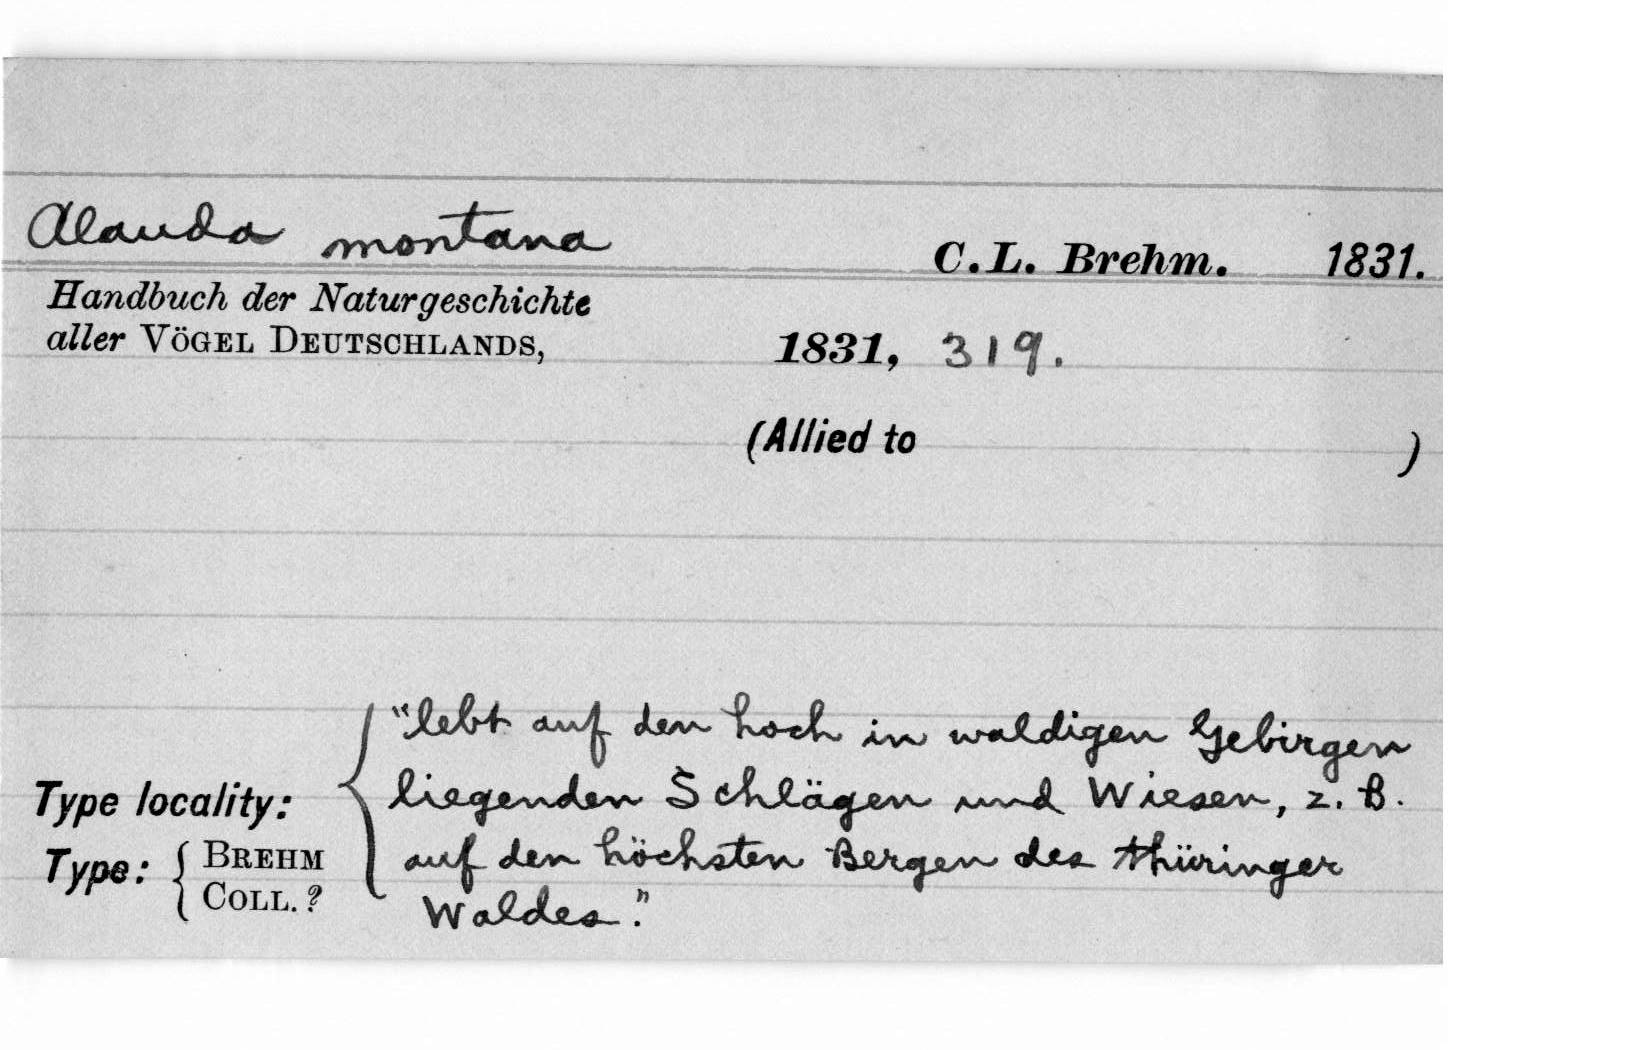 Alauda montana C.L. Brehm. 1831.
Handbuch der Naturgeschichte
aller VÖGEL DEUTSCHLANDS, 1831, 319.
(Allied to )
"lebt auf den hoch in waldigen Gebirgen
Type locality: liegenden Schlägen und Wiesen, z. B.
Type: { BREHM COLL. ? auf den höchsten Bergen des Thüringer
Waldes."